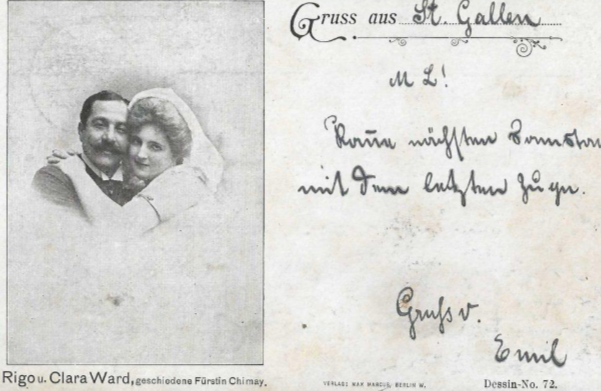 Gruss aus St. Gallen
M L!
nächsten Samstag
mit dem letzten Zuge.
Gruss v.
Emil
Rigo u. Clara Ward, geschiedene Fürstin Chimay.
VERLAG MAX MARCUS, BERLIN W.
Dessin-No. 72.